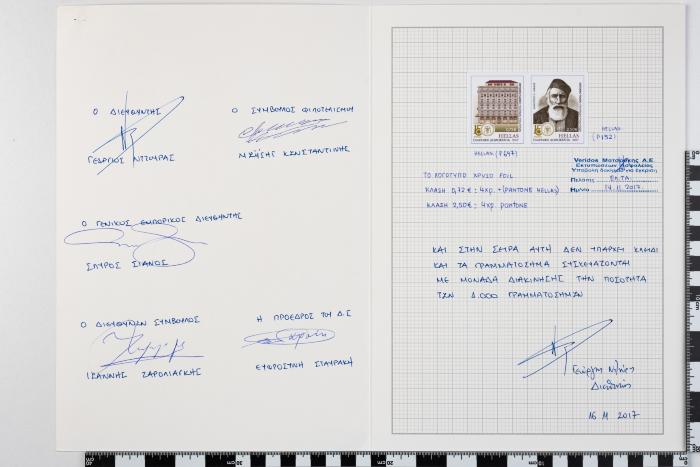 Ο ΔΙΕΥΘΥΝΤΗΣ
ΓΕΩΡΓΙΟΣ ΝΤΖΟΥΡΑΣ
Ο ΣΥΜΒΟΥΛΟΣ ΦΙΛΟΤΕΛΙΣΜΟΥ
ΜΩΥΣΗΣ ΚΩΝΣΤΑΝΤΙΝΗΣ
Ο ΓΕΝΙΚΟΣ ΕΜΠΟΡΙΚΟΣ ΔΙΕΥΘΥΝΤΗΣ
ΣΠΥΡΟΣ ΣΙΑΝΟΣ
Ο ΔΙΕΥΘΥΝΩΝ ΣΥΜΒΟΥΛΟΣ
ΙΩΑΝΝΗΣ ΖΑΡΟΛΙΑΓΚΗΣ
Η ΠΡΟΕΔΡΟΣ ΤΟΥ Δ.Σ
ΕΥΦΡΟΣΥΝΗ ΣΤΑΥΡΑΚΗ
HELLAS
HELLAS
HELLAS (P647)
HELLAS
(P132)
Veridos Ματσούκης Α.Ε.
Εκτυπώσεων Ασφαλείας
Υποβολή δοκιμίου για έγκριση
Πελάτης: ΕΛ.ΤΑ.
Ημ/νία: 14.11.2017
ΤΟ ΛΟΓΟΤΥΠΟ ΧΡΥΣΟ FOIL
ΚΛΑΣΗ 0,72 € : 4χρ. + (PANTONE HELLAS)
ΚΛΑΣΗ 2,50€ : 4χρ. PANTONE
ΚΑΙ ΣΤΗΝ ΣΕΙΡΑ ΑΥΤΗ ΔΕΝ ΥΠΑΡΧΕΙ ΚΛΕΙΔΙ
ΚΑΙ ΤΑ ΓΡΑΜΜΑΤΟΣΗΜΑ ΣΥΣΚΕΥΑΖΟΝΤΑΙ
ΜΕ ΜΟΝΑΔΑ ΔΙΑΚΙΝΗΣΗΣ ΤΗΝ ΠΟΣΟΤΗΤΑ
ΤΩΝ 1.000 ΓΡΑΜΜΑΤΟΣΗΜΩΝ
16 11 2017